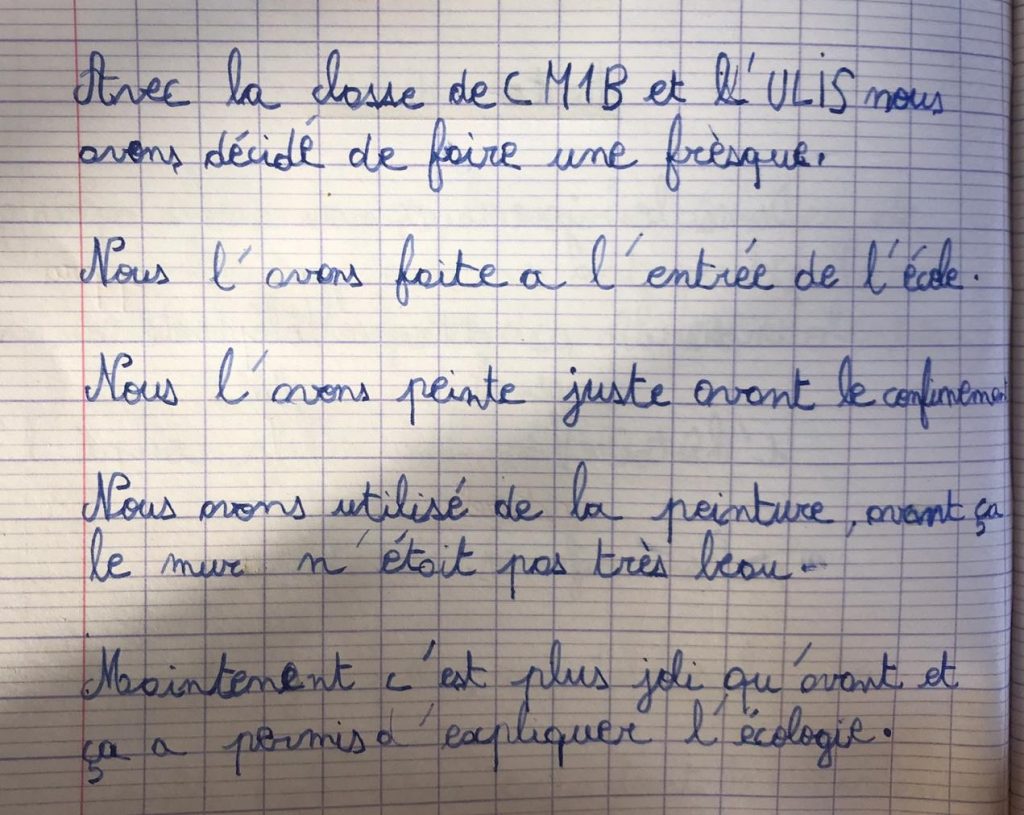 Avec la classe de CM1B et l'ULIS nous
avons décidé de faire une frèsque.
Nous l'avons faite a l'entrée de l'école.
Nous l'avons peinte juste avant le confinement
Nous avons utilisé de la peinture, avant ça
le mur n'était pas très beau.
Maintement c'est plus joli qu'avant et
ça a permis d'expliquer l'écologie.